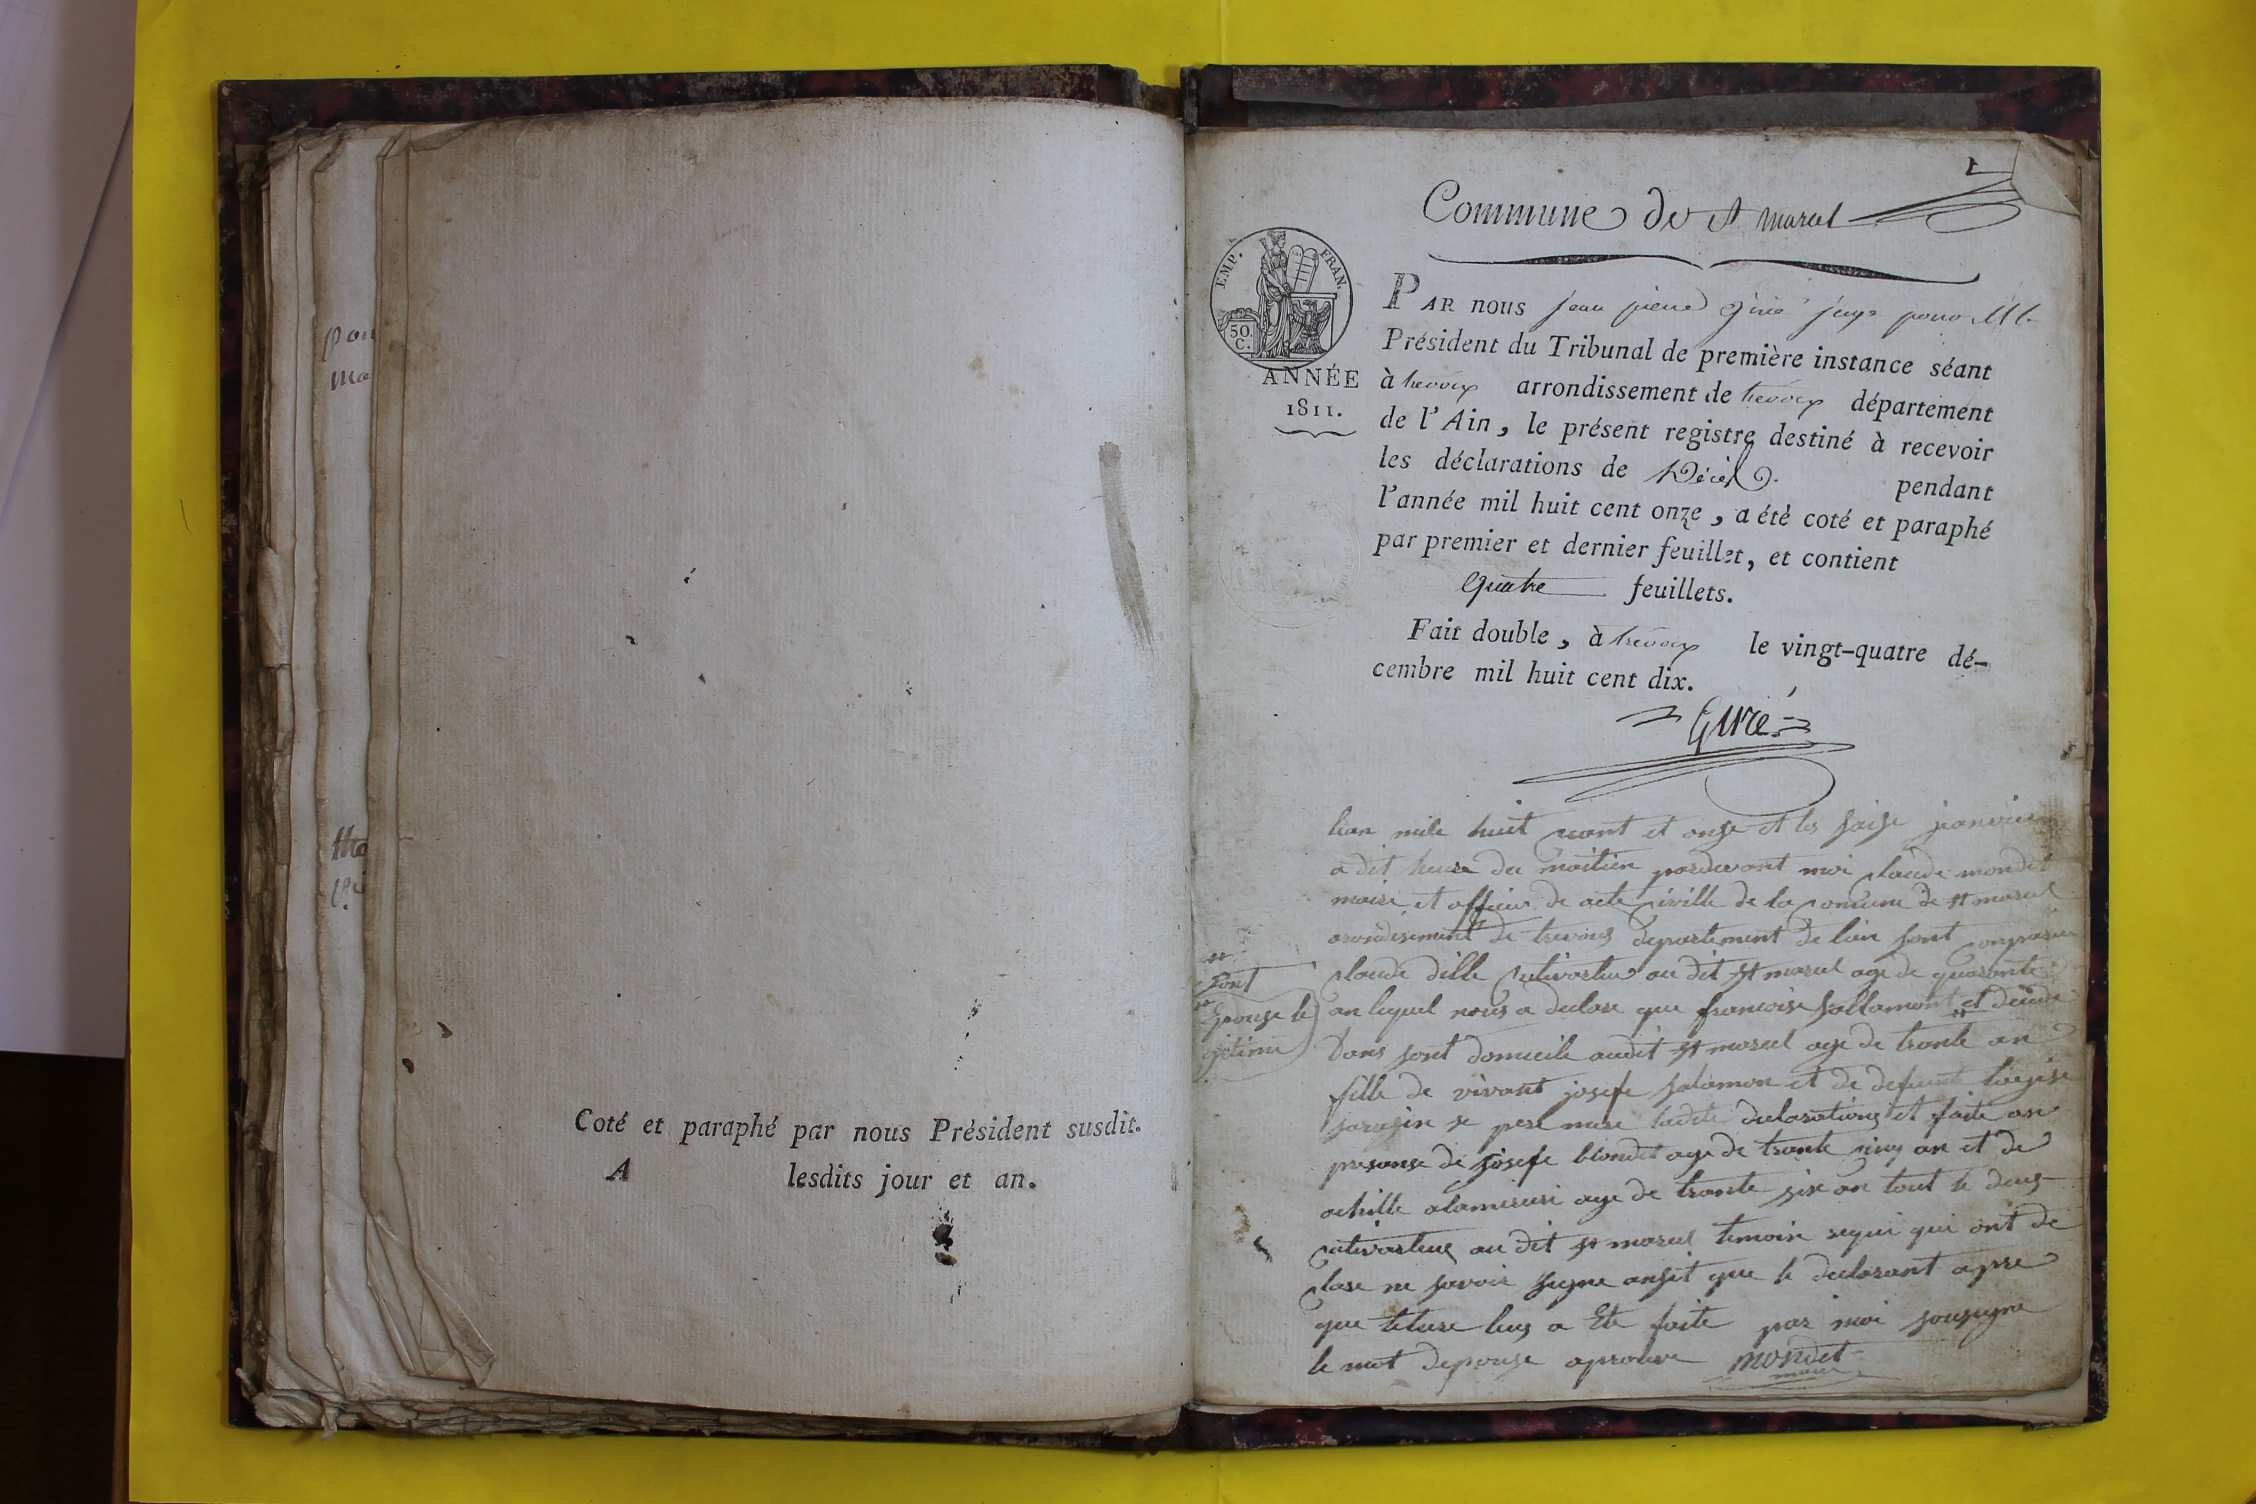 Pou
Ma
Coté et paraphé par nous Président susdit.
A lesdits jour et an.
1
Commune de St marcel
EMP. FRAN.
50.
C.
ANNÉE
1811.
PAR nous jean pierre Giré juge pour M.
Président du Tribunal de première instance séant
à trevoux arrondissement de trevoux département
de l'Ain, le présent registre destiné à recevoir
les déclarations de Décès pendant
l'année mil huit cent onze, a été coté et paraphé
par premier et dernier feuillet, et contient
quatre feuillets.
Fait double, à trevoux le vingt-quatre dé-
cembre mil huit cent dix.
Giré
lian mile huit cant et onse et les saise janvier
a dit heure du maitien pardevant moi claude mondet
maire et officier de acte civille de la comune de st marcel
arondisement de trevous departement de lain sont
claude dille cultivateur au dit st marcel age de quarante
an lequel nous a declare que francoise sallamont et decede
sont
Epouse le
gitime
Dans sont domicile audit st marcel age de trante an
fille de vivant josefe salamon et de defeunt
sarazin se pere mere ladite declarations et faite an
presanse de josefe blondet age de trante cinq an et de
achille age de trante six an tout le deus
cultivateur au dit st marcel temoin requi qui ont de
clare ne savoir signe ansit que le declarant apre
que leture leus a Ete faite par moi sousigne
le mot depouse aprouve mondet
maire